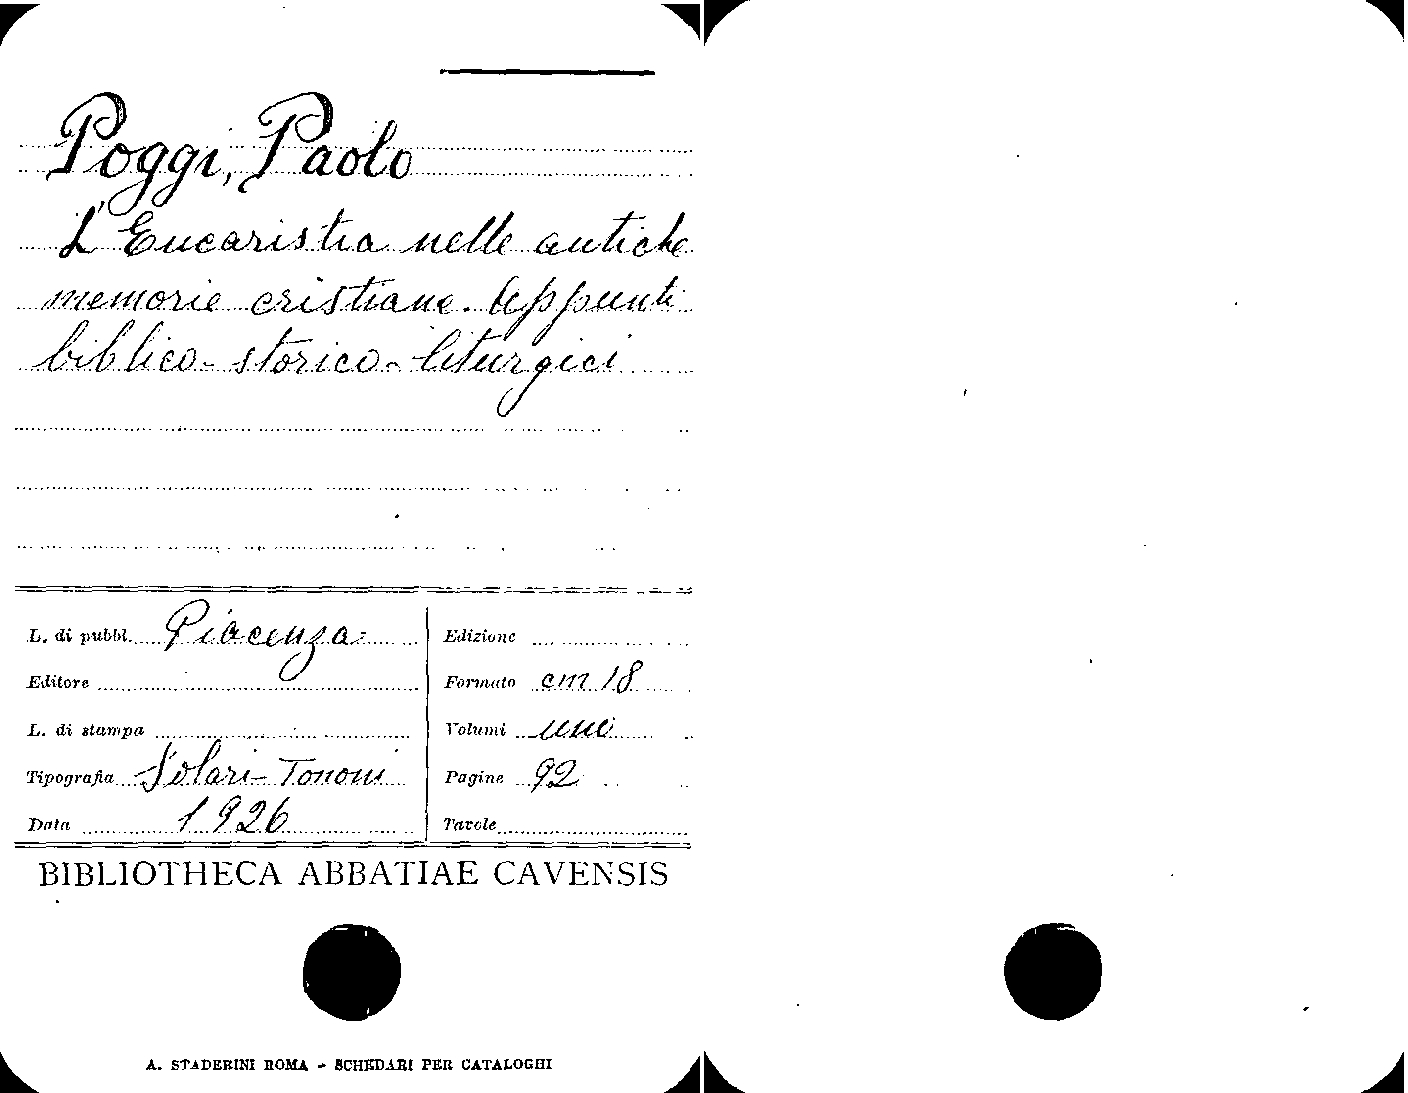 Poggi, Paolo
L'Eucaristia nelle antiche
memorie cristiane. Appunti
biblico-storico-liturgici
L. di pubbl. Piacenza
Editore
L. di stampa
Tipografia Solari-Tononi
Data 1926
Edizione
Formato cm 18
Volumi uno
Pagine 92
Tavole
BIBLIOTHECA ABBATIAE CAVENSIS
A. STADERINI ROMA - SCHEDARI PER CATALOGHI